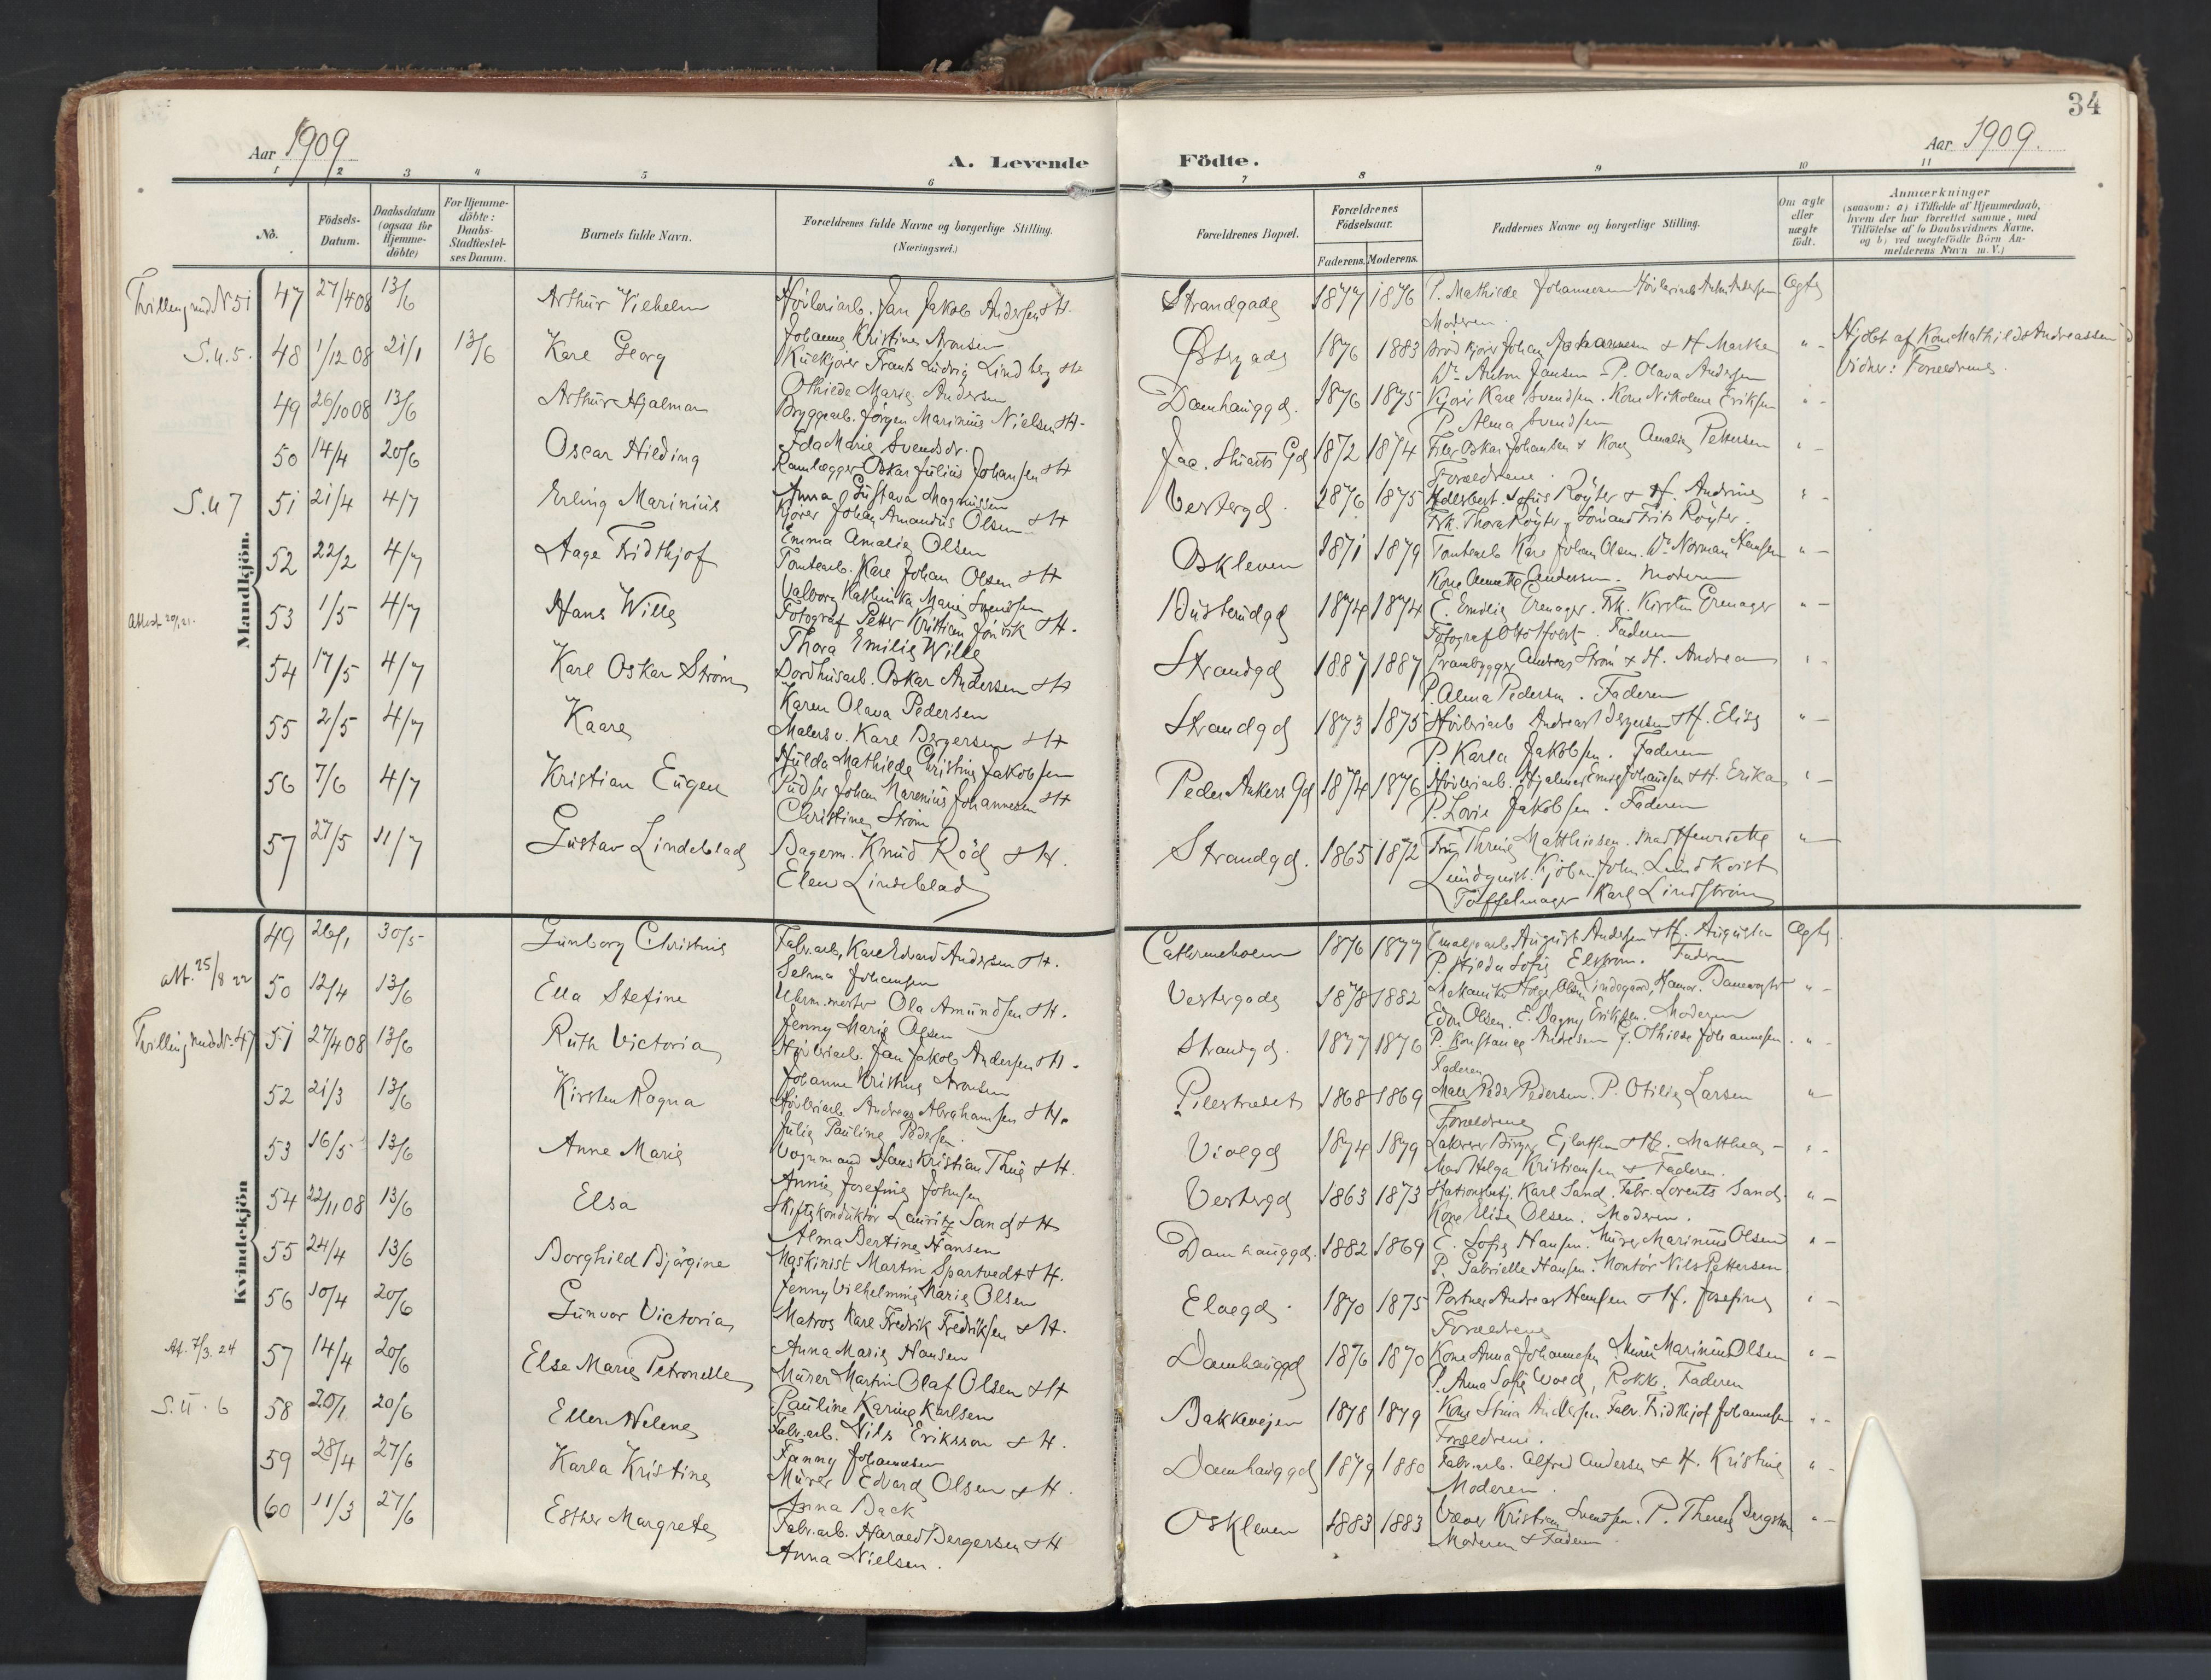 34
Aar 1909
A. Levende Födte.
Aar 1909.
1 2 3 4 5 6 7 8 9 10 11
No.
Födsels-Datum.
Daabsdatum (ogsaa for Hjemme-döbte)
For Hjemme-döbte: Daabs-Stadfæstel-ses Datum.
Barnets fulde Navn.
Forældrenes fulde Navne og borgerlige Stilling. (Næringsvei.)
Forældrenes Bopæl.
Forældrenes Födselsaar.
Faderens. Moderens.
Faddernes Navne og borgerlige Stilling.
Om ægte eller uægte födt.
Anmærkninger
(saasom: a) i Tilfælde af Hjemmedaab,
hvem der har forrettet samme, med
Tilföielse af to Daabsvidners Navne,
og b) ved uægtefödte Börn An-
melderens Navn m. V.)
Mandkjön.
Tvilling med N 51 47 27/4 08 13/6 Arthur Vilhelm Høvleriarb. Jan Jakob Andersen & H. Strandgade 1877 1876 P. Mathilde Johannesen Høvleriarb. Anton Andersen Ægte
Johanne Kristine Aronsen Moderen
S.u.5. 48 1/12 08 21/1 13/6 Karl Georg Kulkjører Frants Ludvig Lindberg & H Østergade 1876 1883 Brødkjører Johan Johannesen & H Marken " - Hjdbt af Kone Mathilde Andreassen
Othilde Marie Andersen Anton Jansen - P. Olava Andersen Vidner: Forældrene.
49 26/10 08 13/6 Arthur Hjalmar Bryggearb. Jørgen Marinius Nielsen & H - Damhauggd. 1876 1875 Kjører Karl Svendsen. Kone Nikoline Eriksen " -
Ida Marie Svendsdr. P. Alma Svendsen
50 14/4 20/6 Oscar Hilding Ramlægger Oskar Julius Johansen & H Jac. Stuarts Gd 1872 1874 Oskar Johansen & Kone Amalie Pettersen " -
Anna Gustava Magnussen Forældrene.
S.u 7 51 21/4 4/7 Erling Marinius Kjører Johan Amandus Olsen & H Vestergd. 1876 1875 Sofus Røyter & H. Andrine " -
Emma Amalie Olsen Frk. Thora Røyter, Sømand Frits Røyter.
52 22/2 4/7 Aage Fridthjof Tomtearb. Karl Johan Olsen & H Oskleven 1871 1879 Tomtearb Karl Johan Olsen. Do Norman Hansen " -
Valborg Kathinka Marie Svendsen Kone Annette Andersen. Moderen
Attest 20/1 21. 53 1/5 4/7 Hans Wille Fotograf Petter Kristian Jonvik & H. Busterudgd 1874 1874 E. Emilie Grenager. Frk. Kirsten Grenager " -
Thora Emilie Wille Fotograf Holst. Faderen
54 17/5 4/7 Karl Oskar Strøm Bordhusarb. Oskar Andersen & H Strandgd 1887 1887 Prambygger Andreas Strøm & H. Andrea " -
Karen Olava Pedersen P. Alma Pedersen. Faderen
55 2/5 4/7 Kaare Malersv. Karl Bergersen & H Strandgd 1873 1875 Høvleriarb Andreas Bergersen & H. Elise " -
Hulda Mathilde Christine Jakobsen P. Karla Jakobsen. Faderen
56 7/6 4/7 Kristian Eugen Pudser Johan Marenius Johannesen & H Peder Ankers Gd 1874 1876 Høvleriarb. Hjalmar Emil Johansen & H. Erika " -
Christine Strøm P. Lovie Jakobsen. Faderen
57 27/5 11/7 Gustav Lindeblad Bagerm. Knud Röd & H. Strandgd. 1865 1872 Fru Thrine Matthiesen. Mad Henriette " -
Elen Lindeblad Lundquist. Kjøbm. John Lundkvist
Tøffelmager Karl Lindstrøm
Kvindekjön
49 26/1 30/5 Gunborg Christine Fabr.arb. Karl Edvard Andersen & H. Cathrineholm 1876 1877 Emaljearb August Andersen & H. Augusta Ægte
Selma Johansen P. Hilda Sofie Elstrøm. Faderen
Att. 25/8 22 50 12/4 13/6 Ella Stefine Uhrm.mester Ola Amundsen & H. Vestergade 1878 1882 Mekaniker Holger Olsen Lindegaard, Hamar. " -
Jenny Marie Olsen Edv. Olsen. E. Dagny Eriksen. Moderen
Tvilling med N. 47 51 27/4 08 13/6 Ruth Victoria Høvleriarb. Jan Jakob Andersen & H. Strandgd. 1877 1876 P. Konstance Andresen G. Othilde Johannesen. " -
Johanne Kristine Aronsen Faderen
52 21/3 13/6 Kirsten Ragna Høvleriarb Andreas Abrahamsen & H. Pilestrædet 1868 1869 Maler Peder Pedersen. P. Otilie Larsen " -
Julie Pauline Pedersen. Forældrene
53 16/5 13/6 Anne Marie Vognmand Hans Kristian Thue & H. Violgd 1874 1879 Lakerer Birger Ejlertsen & H. Matthea - " -
Annie Josefine Johnsen Mad Helga Kristiansen & Faderen.
54 22/11 08 13/6 Elsa Skiftekonduktør Lauritz Sand & H Vestergd 1863 1873 Stationsbetj. Karl Sand. Fabr. Lorents Sand. " -
Alma Bertine Hansen Kone Elise Olsen. Moderen.
55 24/4 13/6 Borghild Bjørgine Maskinist Martin Spartvedt & H. Damhauggd. 1882 1869 E. Sofie Hansen. Murer Marinius Olsen " -
Jenny Vilhelmine Marie Olsen P. Gabrielle Hansen. Montør Nils Pettersen
56 10/4 20/6 Gunvor Victoria Matros Karl Fredrik Fredriksen & H. Elvegd. 1870 1875 Portner Andreas Hansen & H. Josefine " -
Anna Marie Hansen Forældrene
At. 7/3. 24 57 14/4 20/6 Else Marie Petronelle Murer Martin Olaf Olsen & H Damhauggd 1876 1870 Kone Anna Johannesen Murer Marinius Olsen " -
Pauline Karine Karlsen P. Anna Sofie Wold, Rokk. Faderen
S.u. 6 58 20/1 20/6 Ellen Helene Fabr.arb. Nils Eriksson & H. Bakkevejen 1878 1879 Kone Stina Andersen Fabr. Fridthjof Johannesen " -
Fanny Johannesen Forældrene.
59 28/4 27/6 Karla Kristine Murer Edvard Olsen & H. Damhauggd 1879 1880 Fabr.arb. Alfred Andersen & H. Kristine " -
Anna Back Moderen.
60 11/3 27/6 Esther Margrete Fabr.arb. Harald Bergersen & H Oskleven 1883 1883 Væver Kristian Svendsen. P. Therese Bergstrøm " -
Anna Nielsen. Moderen & Faderen